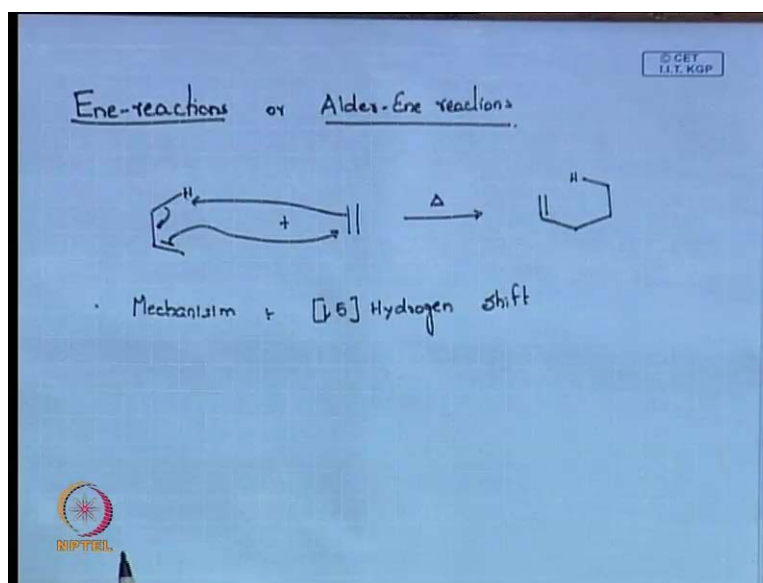 © CET
I.I.T. KGP
Ene-reactions or Alder-Ene reactions.
H + Δ H
Mechanisim : [1,5] Hydrogen shift
NPTEL